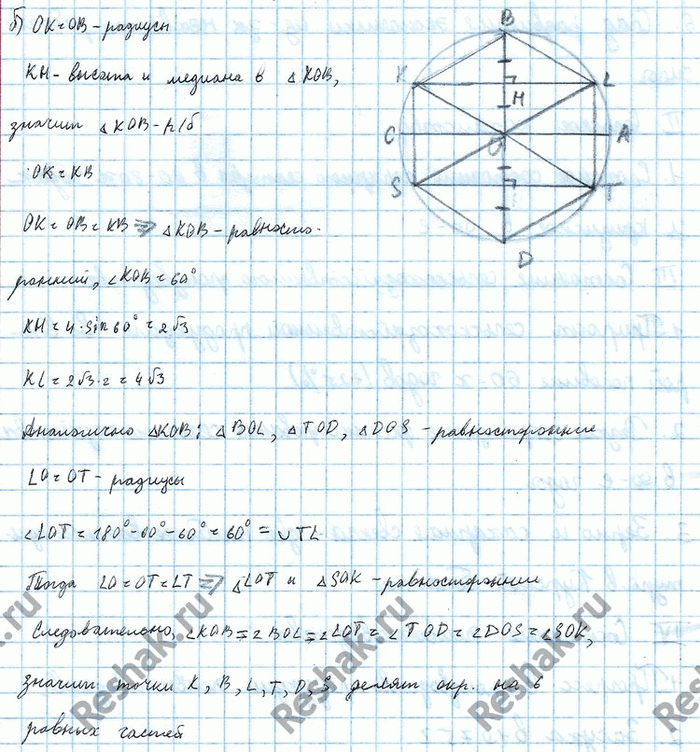 б) OK = OB - радиусы
KH - высота и медиана в △KOB,
значит △KOB - р/б
OK = KB
OK = OB = KB ⇒ △KOB - равносто-
ронний, ∠KOB = 60°
KH = 4 · sin 60° = 2√3
KL = 2√3 · 2 = 4√3
Аналогично △KOB: △BOL, △TOD, △DOS - равносторонние
LO = OT - радиусы
∠LOT = 180° - 60° - 60° = 60° = ∪TL
Тогда LO = OT = LT ⇒ △LOT и △SOK - равносторонние
Следовательно, ∠KOB = ∠BOL = ∠LOT = ∠TOD = ∠DOS = ∠SOK,
значит точки K, B, L, T, D, S делят окр. на 6
равных частей
B
K
L
H
C
O
A
S
T
D
Reshak.ru
Reshak.ru
Reshak.ru
Reshak.ru